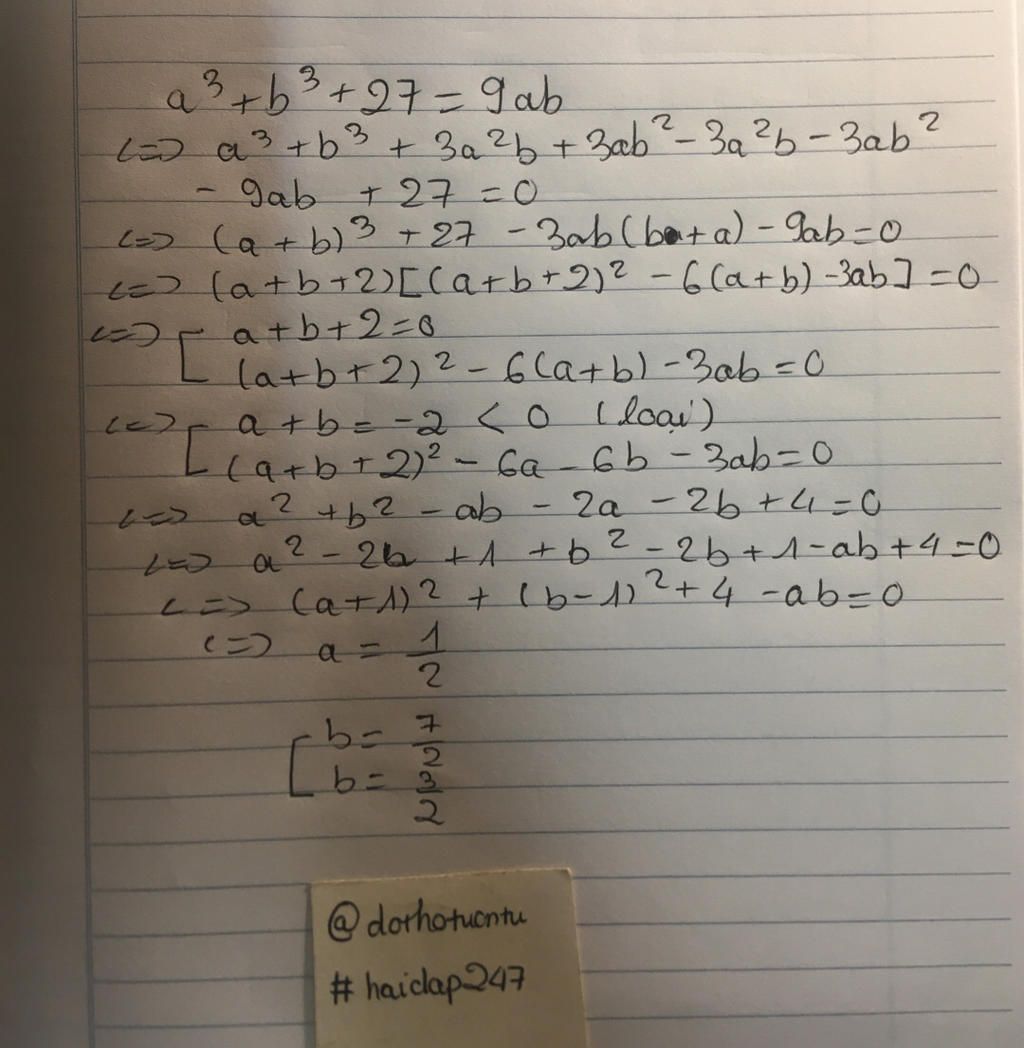 a³ + b³ + 27 = 9ab
<=> a³ + b³ + 3a²b + 3ab² - 3a²b - 3ab²
- 9ab + 27 = 0
<=> (a + b)³ + 27 - 3ab(b + a) - 9ab = 0
<=> (a + b + 2)[(a + b + 2)² - 6(a + b) - 3ab] = 0
<=> [ a + b + 2 = 0
(a + b + 2)² - 6(a + b) - 3ab = 0
<=> [ a + b = -2 < 0 (loại)
(a + b + 2)² - 6a - 6b - 3ab = 0
<=> a² + b² - ab - 2a - 2b + 4 = 0
<=> a² - 2a + 1 + b² - 2b + 1 - ab + 4 = 0
<=> (a + 1)² + (b - 1)² + 4 - ab = 0
<=> a = 1/2
[ b = 7/2
b = 3/2
@dorhotuontu
# haiclap247